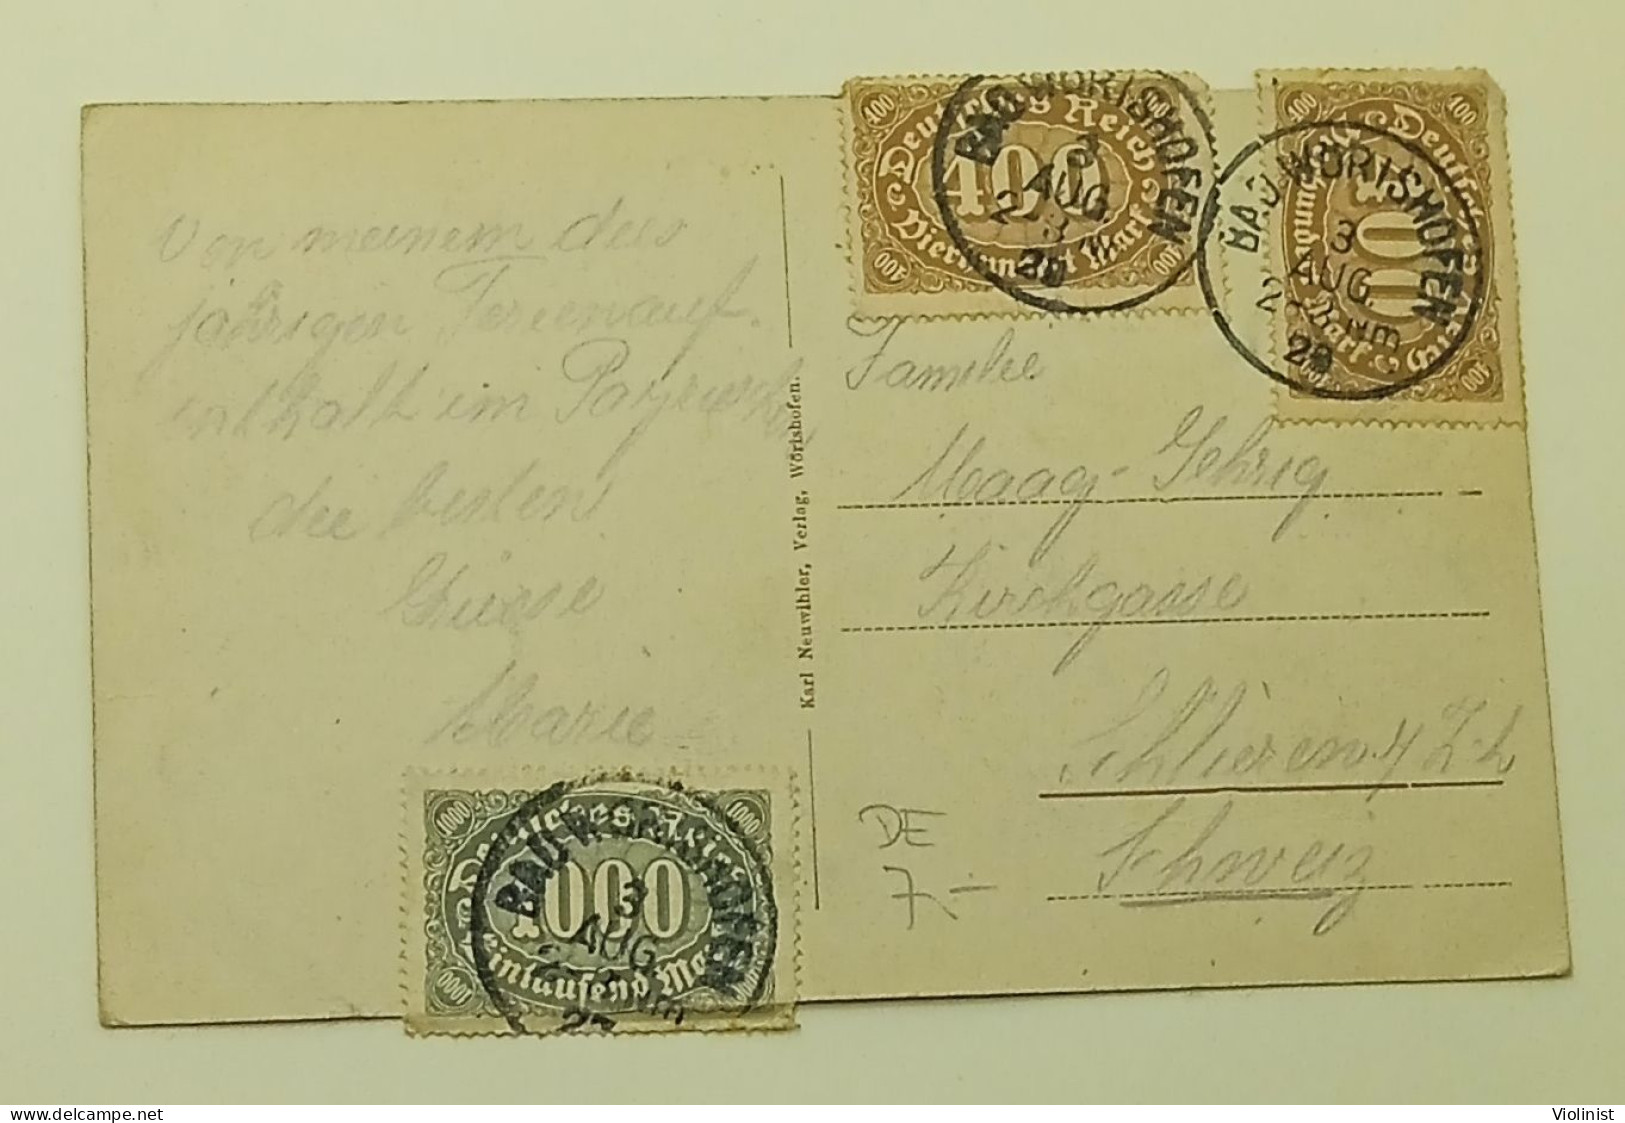 Von meinem dies
jährigen Ferienauf.
enthalt im Bayrischen
die besten
Grüsse
Marie
Karl Neuwihler, Verlag, Wörishofen.
Familie
Maag-Gehrig
Kirchgasse
Schlieren / Zch
Schweiz
DE
7.-
400 400
Deutsches Reich
400
Vierhundert Mark
400 400
BAD WÖRISHOFEN
3
AUG.
400 400
Deutsches Reich
400
Vierhundert Mark
400 400
BAD WÖRISHOFEN
3
AUG.
Nm
1000 1000
Deutsches Reich
1000
Eintausend Mark
1000 1000
BAD WÖRISHOFEN
3
AUG.
Nm
delcampe.net
Violinist